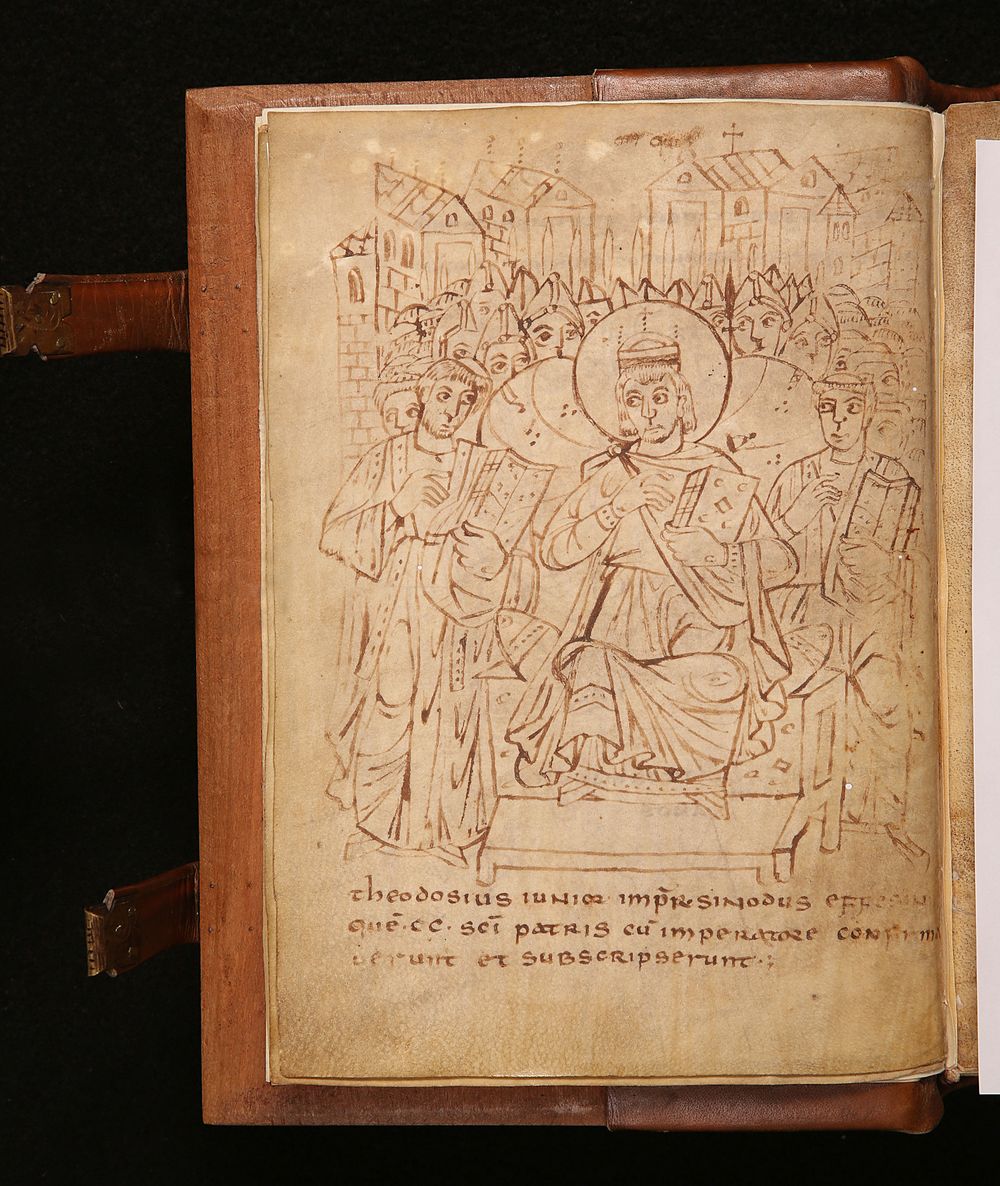 theodosius iunior imp̄r sinodus effesin
quē · CC · sc̄i patris cū imperatore confirma
verunt et subscripserunt · ;